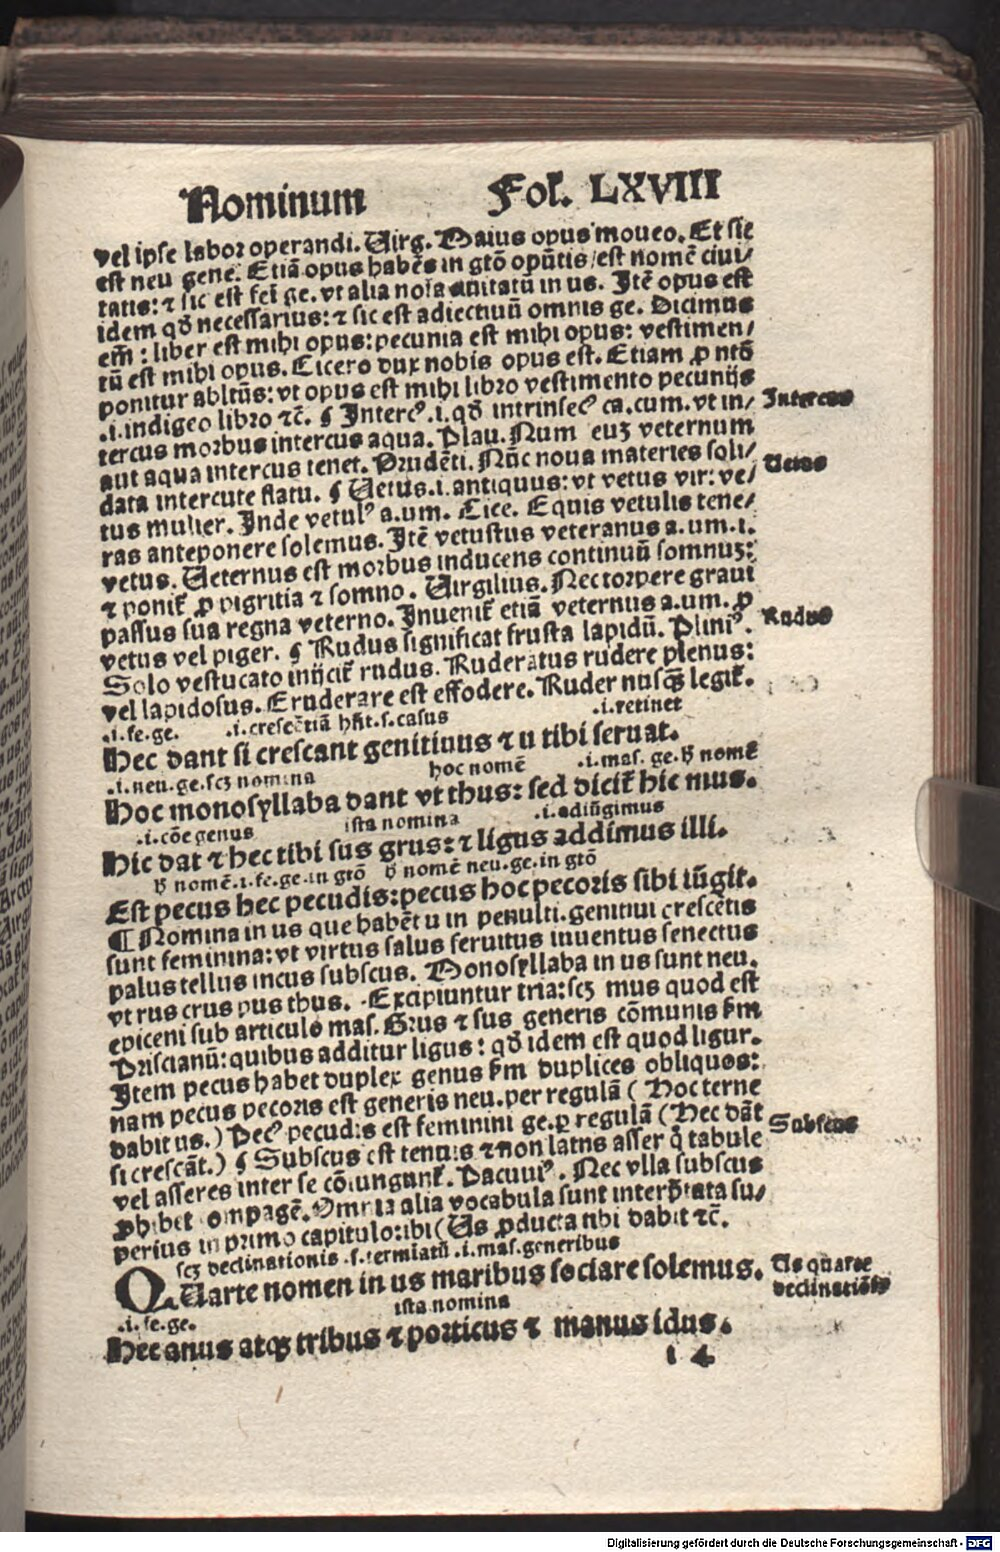 Nominum Fol. LXVIII
vel ipse labor operandi. Virg. Maius opus moueo. Et sic
est neu gene. Etiā opus habēs in gtō opūtis/est nomē ciui/
tatis: ⁊ sic est fei ge. vt alia noīa ciuitatū in us. Itē opus est
idem qđ necessarius: ⁊ sic est adiectiuū omnis ge. Dicimus
em̄: liber est mihi opus: pecunia est mihi opus: vestimen/
tū est mihi opus. Cicero dux nobis opus est. Etiam ꝓ ntō
ponitur abltūs: vt opus est mihi libro vestimento pecunijs
.i. indigeo libro ⁊c̄. ¶ Intercꝰ .i. qđ intrinsecꝰ ca. cum. vt in/
Intercus
tercus morbus intercus aqua. Plau. Num euꝫ veternum
aut aqua intercus tenet. Prudēti. Nūc noua materies soli/
Vetus
data intercute flatu. ¶ Vetus .i. antiquus: vt vetus vir: ve/
tus mulier. Inde vetulꝰ a. um. Cice. Equis vetulis tene/
ras anteponere solemus. Itē vetustus veteranus a. um. i.
vetus. Veternus est morbus inducens continuū somnuꝫ:
⁊ ponit̄ ꝓ pigritia ⁊ somno. Virgilius. Nec torpere graui
passus sua regna veterno. Inuenit̄ etiā veternus a. um. ꝓ
vetus vel piger. ¶ Rudus significat frusta lapidū. Pliniꝰ.
Rudus
Solo vestucato inijcit̄ rudus. Ruderatus rudere plenus:
vel lapidosus. Eruderare est effodere. Ruder nusq̄ȝ legit̄.
.i. fe. ge. .i. crescētiā hn̄t. s. casus .i. retinet
Hec dant si crescant genitiuus ⁊ u tibi seruat.
.i. neu. ge. scꝫ nomina hoc nomē .i. mas. ge. ħ nomē
Hoc monosyllaba dant vt thus: sed dicit̄ hic mus.
.i. cōe genus ista nomina .i. adiūgimus
Hic dat ⁊ hec tibi sus grus: ⁊ ligus addimus illi.
ħ nomē .i. fe. ge. in gtō ħ nomē neu. ge. in gtō
Est pecus hec pecudis: pecus hoc pecoris sibi iūgit.
¶ Nomina in us que habēt u in penulti. genitiui crescētis
sunt feminina: vt virtus salus seruitus iuuentus senectus
palus tellus incus subscus. Monosyllaba in us sunt neu.
vt rus crus pus thus. Excipiuntur tria: scꝫ mus quod est
epiceni sub articulo mas. Grus ⁊ sus generis cōmunis s̄m
Priscianū: quibus additur ligus: qđ idem est quod ligur.
Item pecus habet duplex genus s̄m duplices obliquos:
nam pecus pecoris est generis neu. per regulā ( Hoc terne
dabit us.) Pecꝰ pecudis est feminini ge. ꝑ regulā ( Hec dāt
si crescāt.) ¶ Subscus est tenuis ⁊ non latus asser q̄ tabule
Subscus
vel asseres inter se cōiungunt̄. Pacuuiꝰ. Nec vlla subscus
ꝓhibet compagē. Omnia alia vocabula sunt interp̄tata su/
perius in primo capitulo: ibi ( Us ꝓducta tibi dabit ⁊c̄.
scꝫ declinationis .s. termiatū .i. mas. generibus
QUarte nomen in us maribus sociare solemus.
Us quarte
declinatiōis
.i. fe. ge. ista nomina
Hec anus atqꝫ tribus ⁊ porticus ⁊ manus idus.
i 4
Digitalisierung gefördert durch die Deutsche Forschungsgemeinschaft - DFG